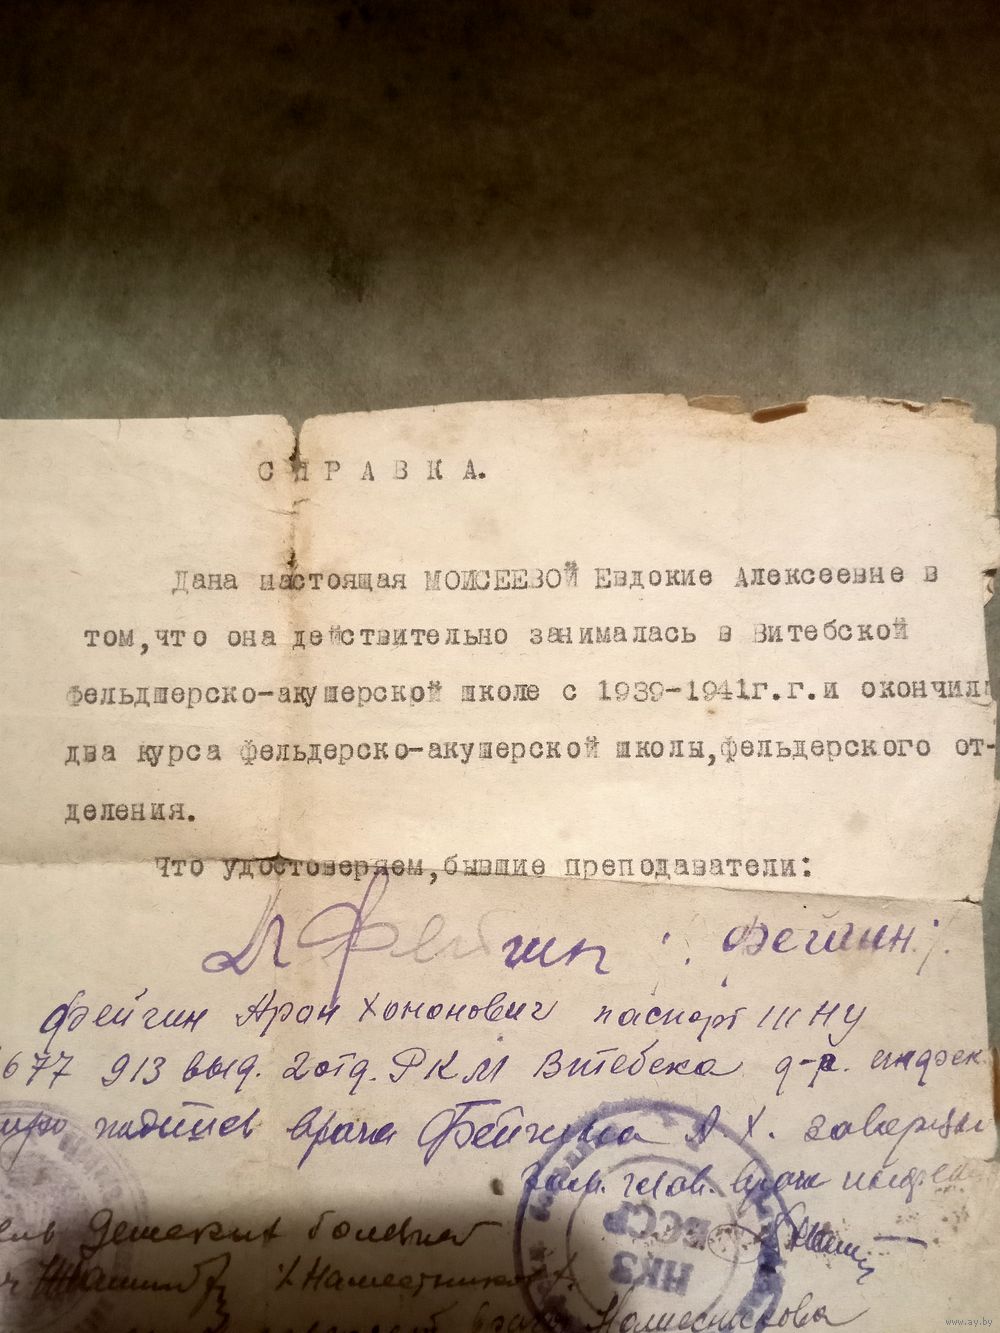 СПРАВКА.
Дана настоящая МОИСЕЕВОЙ Евдокие Алексеевне в
том,что она действительно занималась в Витебской
фельдшерско-акушерской школе с 1939-1941г.г.и окончила
два курса фельдерско-акушерской школы,фельдерского от-
деления.
Что удостоверяем,бывшие преподаватели:
А Фейгин : Фейгин
Фейгин Арон Хононович паспорт III НУ
677 913 выд. 2 отд. РКМ Витебска д-р.
подпись врача Фейгина А.Х.
Зам. глав. врач
НКЗ
БССР
Детских болезней
/Наместников
врача Наместникова
www.ay.by